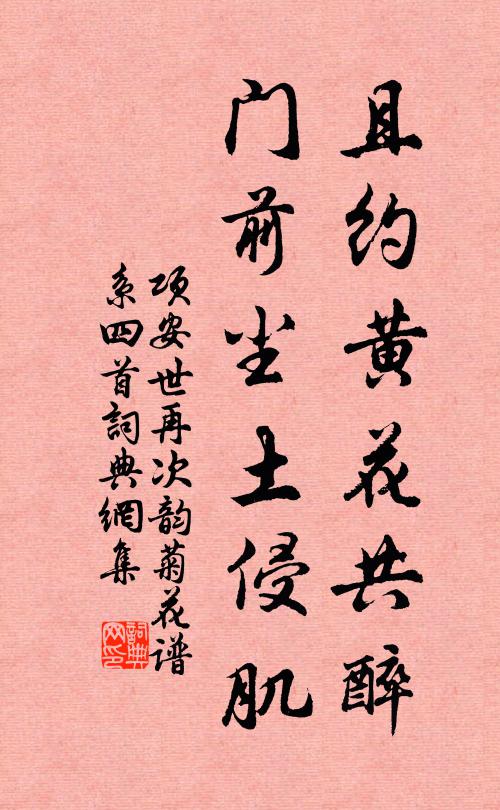 且约黄花共醉
门前尘土侵肌
项安世再次韵菊花谱
系四首詞典網集
詞典
网印